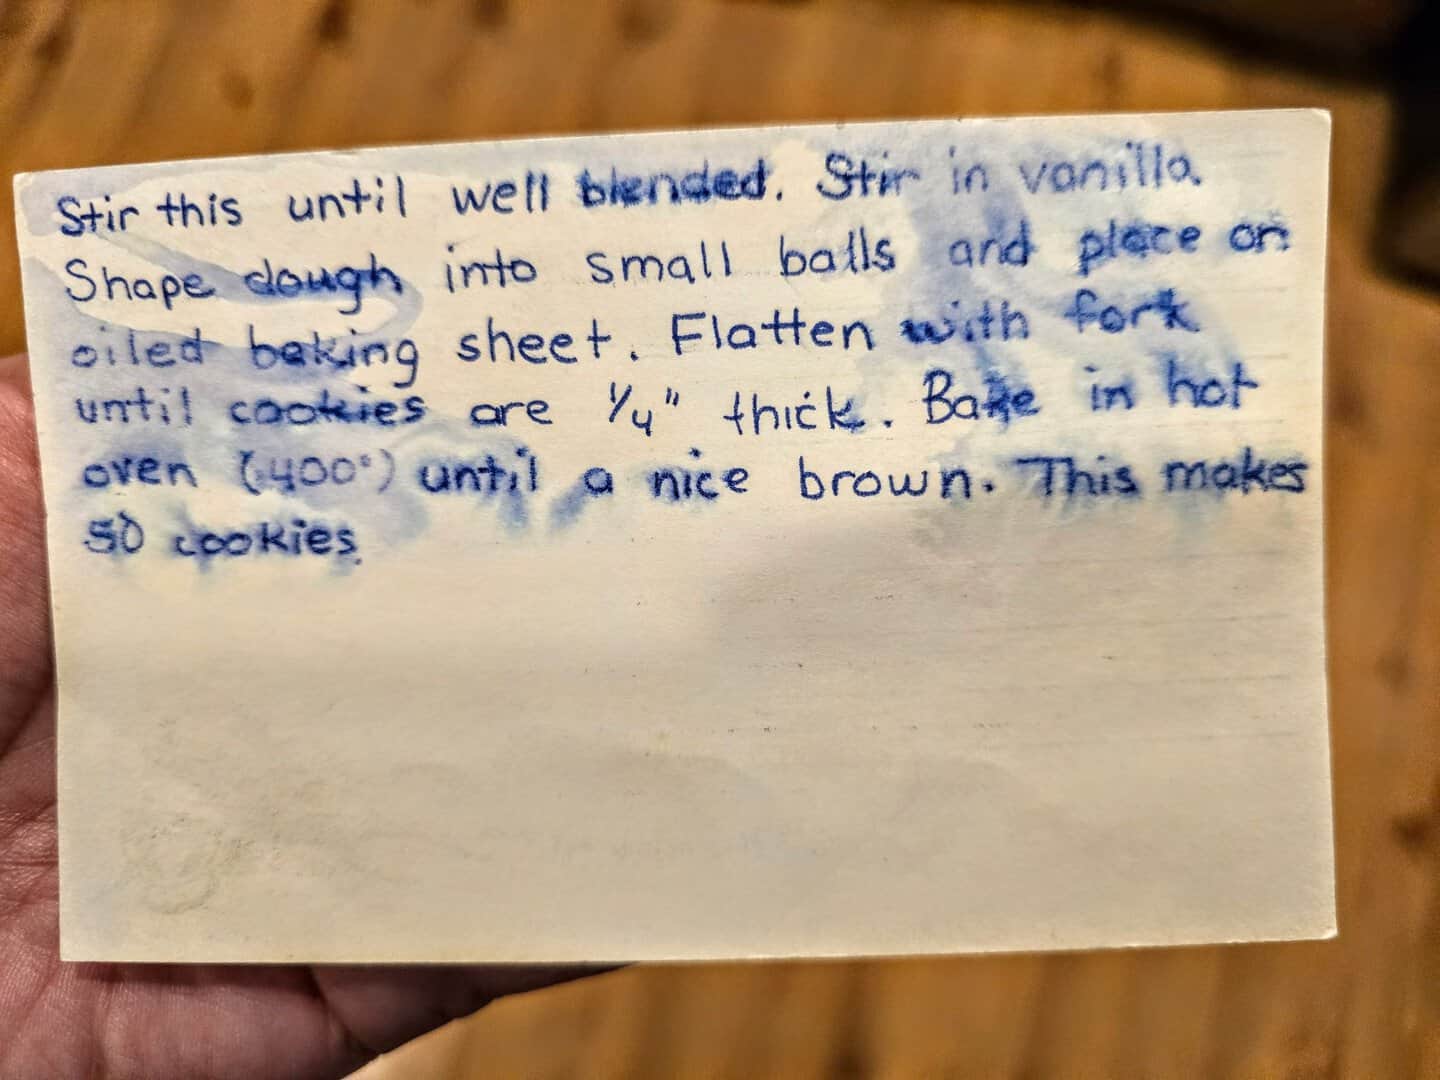 Stir this until well blended. Stir in vanilla.
Shape dough into small balls and place on
oiled baking sheet. Flatten with fork
until cookies are 1/4" thick. Bake in hot
oven (400°) until a nice brown. This makes
50 cookies.